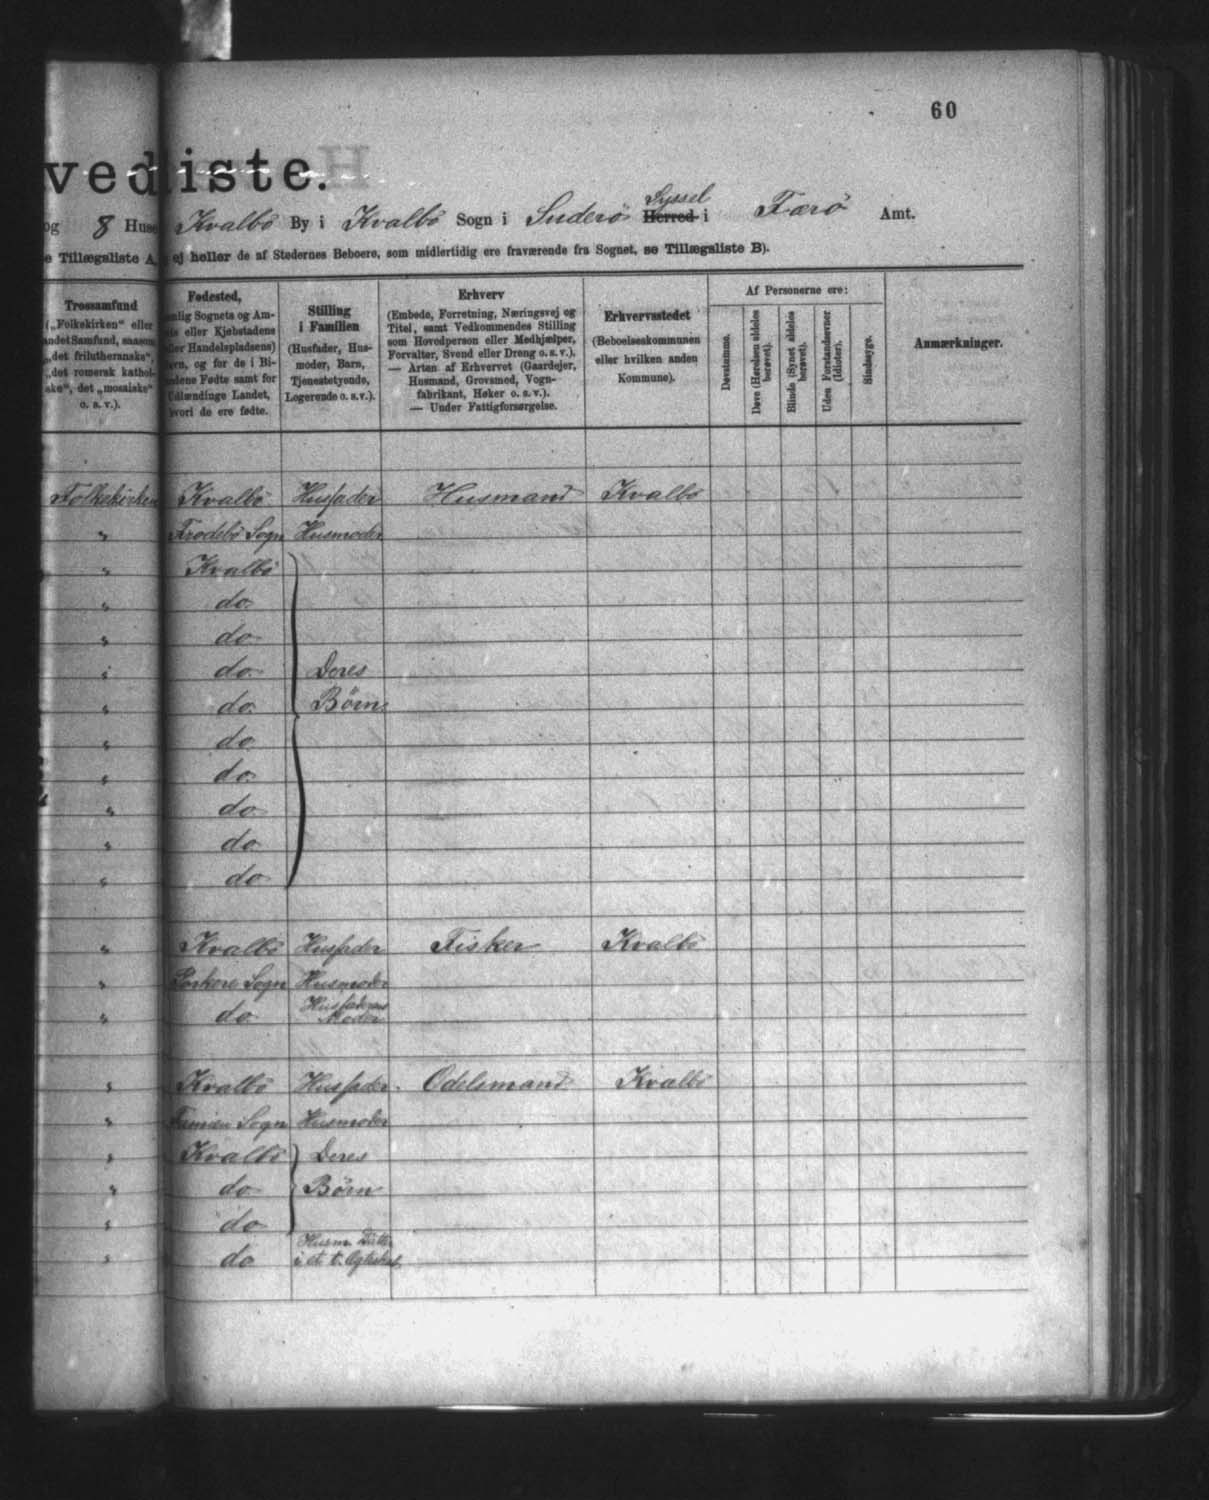 60
vedliste.
Syssel
og 8 Huse Kvalbø By i Kvalbø Sogn i Suderø Herred i Færø Amt.
e Tillægsliste A, ej heller de af Stedernes Beboere, som midlertidig ere fraværende fra Sognet, se Tillægsliste B).
Trossamfund
(„Folkekirken“ eller
andet Samfund, saasom
„det frilutheranske“,
„det romersk kathol-
ske“, det „mosaiske“
o. s. v.).
Fødested,
nemlig Sognets og Am-
ts eller Kjøbstadens
eller Handelspladsens)
Navn, og for de i Bi-
landene Fødte samt for
Udlændinge Landet,
hvori de ere fødte.
Stilling
i Familien
(Husfader, Hus-
moder, Barn,
Tjenestetyende,
Logerende o. s. v.).
Erhverv
(Embede, Forretning, Næringsvej og
Titel, samt Vedkommendes Stilling
som Hovedperson eller Medhjælper,
Forvalter, Svend eller Dreng o. s. v.).
— Arten af Erhvervet (Gaardejer,
Husmand, Grovsmed, Vogn-
fabrikant, Høker o. s. v.).
— Under Fattigforsørgelse.
Erhvervsstedet
(Beboelseskommunen
eller hvilken anden
Kommune).
Af Personerne ere:
Døvstumme.
Døve (Hørelsen aldeles
berøvet).
Blinde (Synet aldeles
berøvet).
Uden Forstandsevner
(Idioter).
Sindssyge.
Anmærkninger.
Folkekirken Kvalbø Husfader Husmand Kvalbø
" Frodebø Sogn Husmoder
" Kvalbø
" do
" do
" do Deres
" do Børn
" do
" do
" do
" do
" do
" Kvalbø Husfader Fisker Kvalbø
" Porkere Sogn Husmoder
" do Husfaderens
Moder
" Kvalbø Husfader Odelsmand Kvalbø
" Famien Sogn Husmoder
" Kvalbø Deres
" do Børn
" do
" do Husm. Datter
i et t. Ægteskab